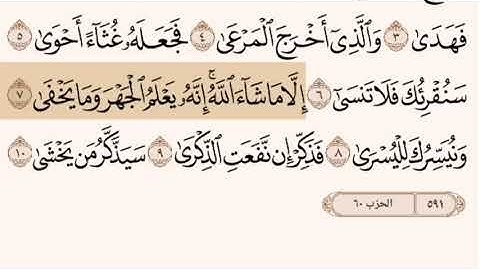 فَهَدَىٰ ٣ وَٱلَّذِىٓ أَخْرَجَ ٱلْمَرْعَىٰ ٤ فَجَعَلَهُۥ غُثَآءً أَحْوَىٰ ٥
سَنُقْرِئُكَ فَلَا تَنسَىٰٓ ٦ إِلَّا مَا شَآءَ ٱللَّهُ ۚ إِنَّهُۥ يَعْلَمُ ٱلْجَهْرَ وَمَا يَخْفَىٰ ٧
وَنُيَسِّرُكَ لِلْيُسْرَىٰ ٨ فَذَكِّرْ إِن نَّفَعَتِ ٱلذِّكْرَىٰ ٩ سَيَذَّكَّرُ مَن يَخْشَىٰ ١٠
٥٩١ الحزب ٦٠